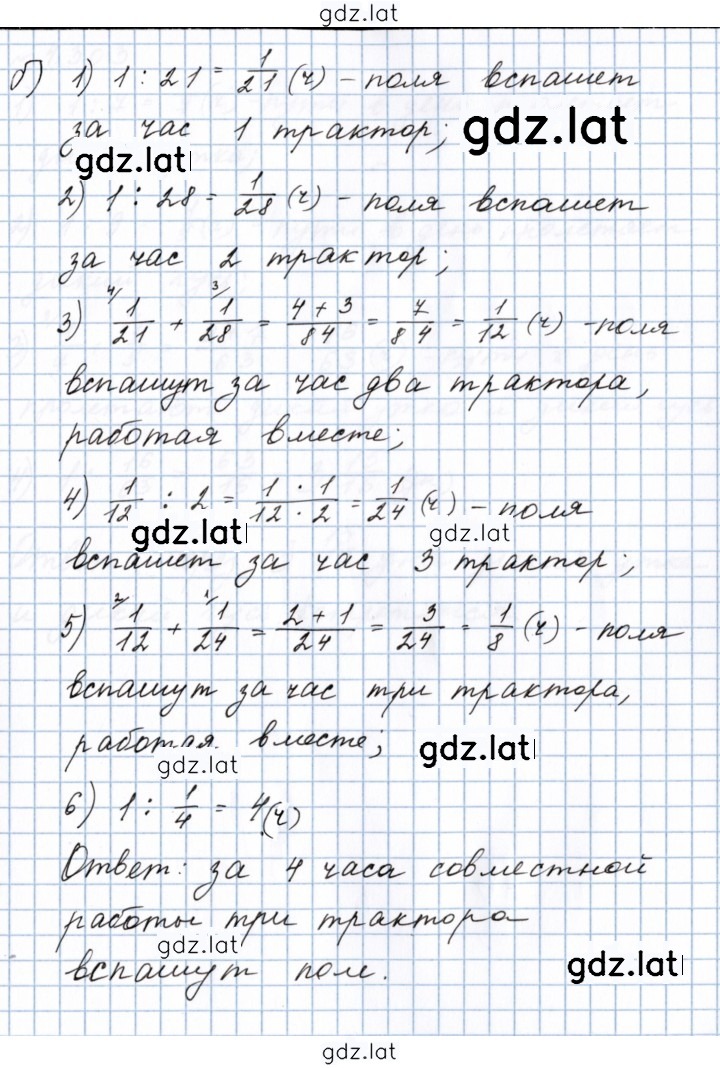 gdz.lat
б) 1) 1 : 21 = 1/21 (ч) - поля вспашет
за час 1 трактор; gdz.lat
gdz.lat
2) 1 : 28 = 1/28 (ч) - поля вспашет
за час 2 трактор;
3) 4/ 1/21 + 3/ 1/28 = (4 + 3)/84 = 7/84 = 1/12 (ч) - поля
вспашут за час два трактора,
работая вместе;
4) 1/12 : 2 = (1 · 1)/(12 · 2) = 1/24 (ч) - поля
gdz.lat gdz.lat
вспашет за час 3 трактор;
5) 2/ 1/12 + 1/ 1/24 = (2 + 1)/24 = 3/24 = 1/8 (ч) - поля
вспашут за час три трактора,
работая вместе; gdz.lat
gdz.lat
6) 1 : 1/4 = 4 (ч)
Ответ: за 4 часа совместной
работы три трактора
gdz.lat
вспашут поле. gdz.lat
gdz.lat